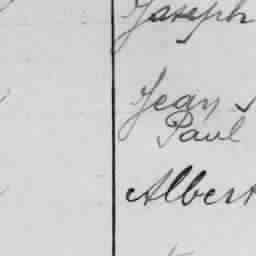 Joseph
Jean
Paul
Albert